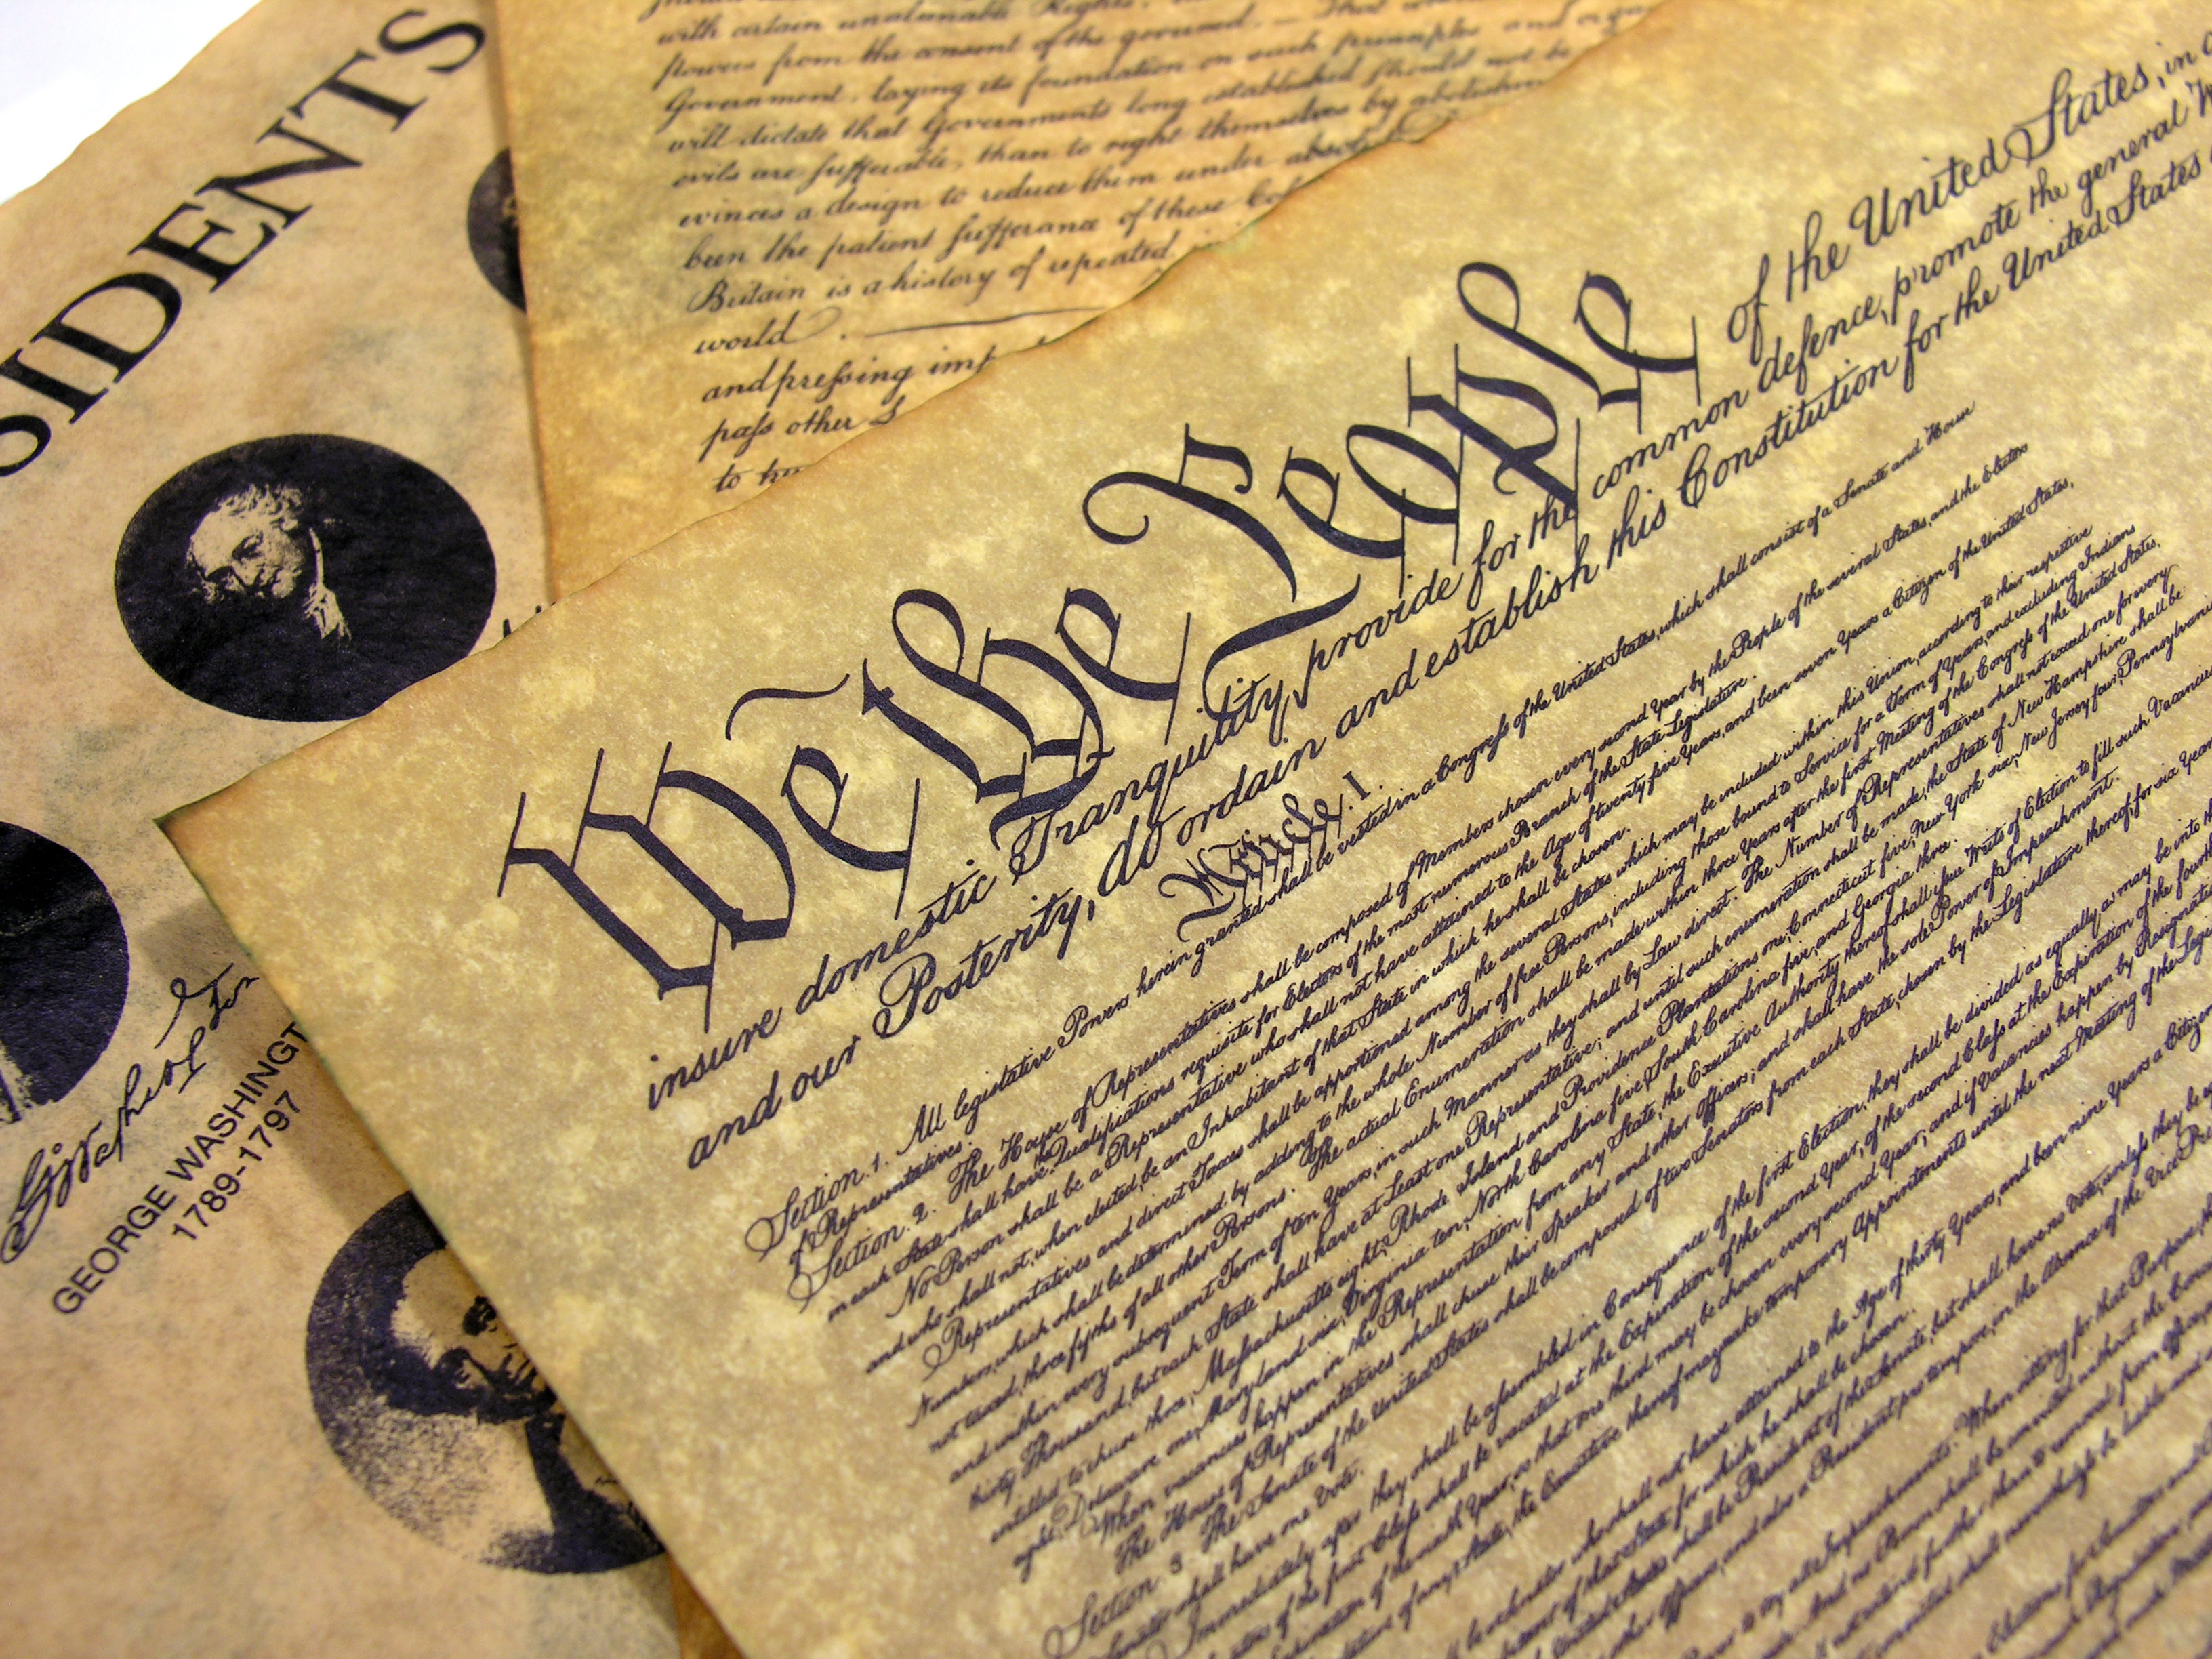 SIDENTS
GEORGE WASHINGT
1789-1797
with certain unalienable Rights,
powers from the consent of the governed. — That
Government, laying its foundation on such principles and
will dictate that Governments long established should not be
evils are sufferable, than to right themselves by abolishin
evinces a design to reduce them under absol
been the patient sufferance of these Col
Britain is a history of repeated
world.
and pressing imp
pass other L
We the People of the United States, in
insure domestic Tranquility, provide for the common defence, promote the general
and our Posterity, do ordain and establish this Constitution for the United States
Article. I.
Section. 1. All legislative Powers herein granted shall be vested in a Congress of the United States, which shall consist of a Senate and House
of Representatives.
Section. 2. The House of Representatives shall be composed of Members chosen every second Year by the People of the several States, and the Electors
in each State shall have the Qualifications requisite for Electors of the most numerous Branch of the State Legislature.
No Person shall be a Representative who shall not have attained to the Age of twenty five Years, and been seven Years a Citizen of the United States,
and who shall not, when elected, be an Inhabitant of that State in which he shall be chosen.
Representatives and direct Taxes shall be apportioned among the several States which may be included within this Union, according to their respective
Numbers, which shall be determined by adding to the whole Number of free Persons, including those bound to Service for a Term of Years, and excluding Indians
not taxed, three fifths of all other Persons. The actual Enumeration shall be made within three Years after the first Meeting of the Congress of the United States,
and within every subsequent Term of ten Years, in such Manner as they shall by Law direct. The Number of Representatives shall not exceed one for every
thirty Thousand, but each State shall have at Least one Representative; and until such enumeration shall be made, the State of New Hampshire shall be
entitled to chuse three, Massachusetts eight, Rhode Island and Providence Plantations one, Connecticut five, New York six, New Jersey four, Pennsylvania
eight, Delaware one, Maryland six, Virginia ten, North Carolina five, South Carolina five, and Georgia three.
When vacancies happen in the Representation from any State, the Executive Authority thereof shall issue Writs of Election to fill such Vacancies
The House of Representatives shall chuse their Speaker and other Officers; and shall have the sole Power of Impeachment.
Section. 3. The Senate of the United States shall be composed of two Senators from each State, chosen by the Legislature thereof, for six Years
Senator shall have one Vote.
Immediately after they shall be assembled in Consequence of the first Election, they shall be divided as equally as may be into
of the first Class shall be vacated at the Expiration of the second Year, of the second Class at the Expiration of the fourth
of the sixth Year, so that one third may be chosen every second Year; and if Vacancies happen by Resignation
of any State, the Executive thereof may make temporary Appointments until the next Meeting of the Legis
who shall not have attained to the Age of thirty Years, and been nine Years a Citizen
of that State for which he shall be chosen.
States shall be President of the Senate, but shall have no Vote, unless they be
Officers, and also a President pro tempore, in the Absence of the Vice Pre
Power to try all Impeachments. When sitting for that Purpose,